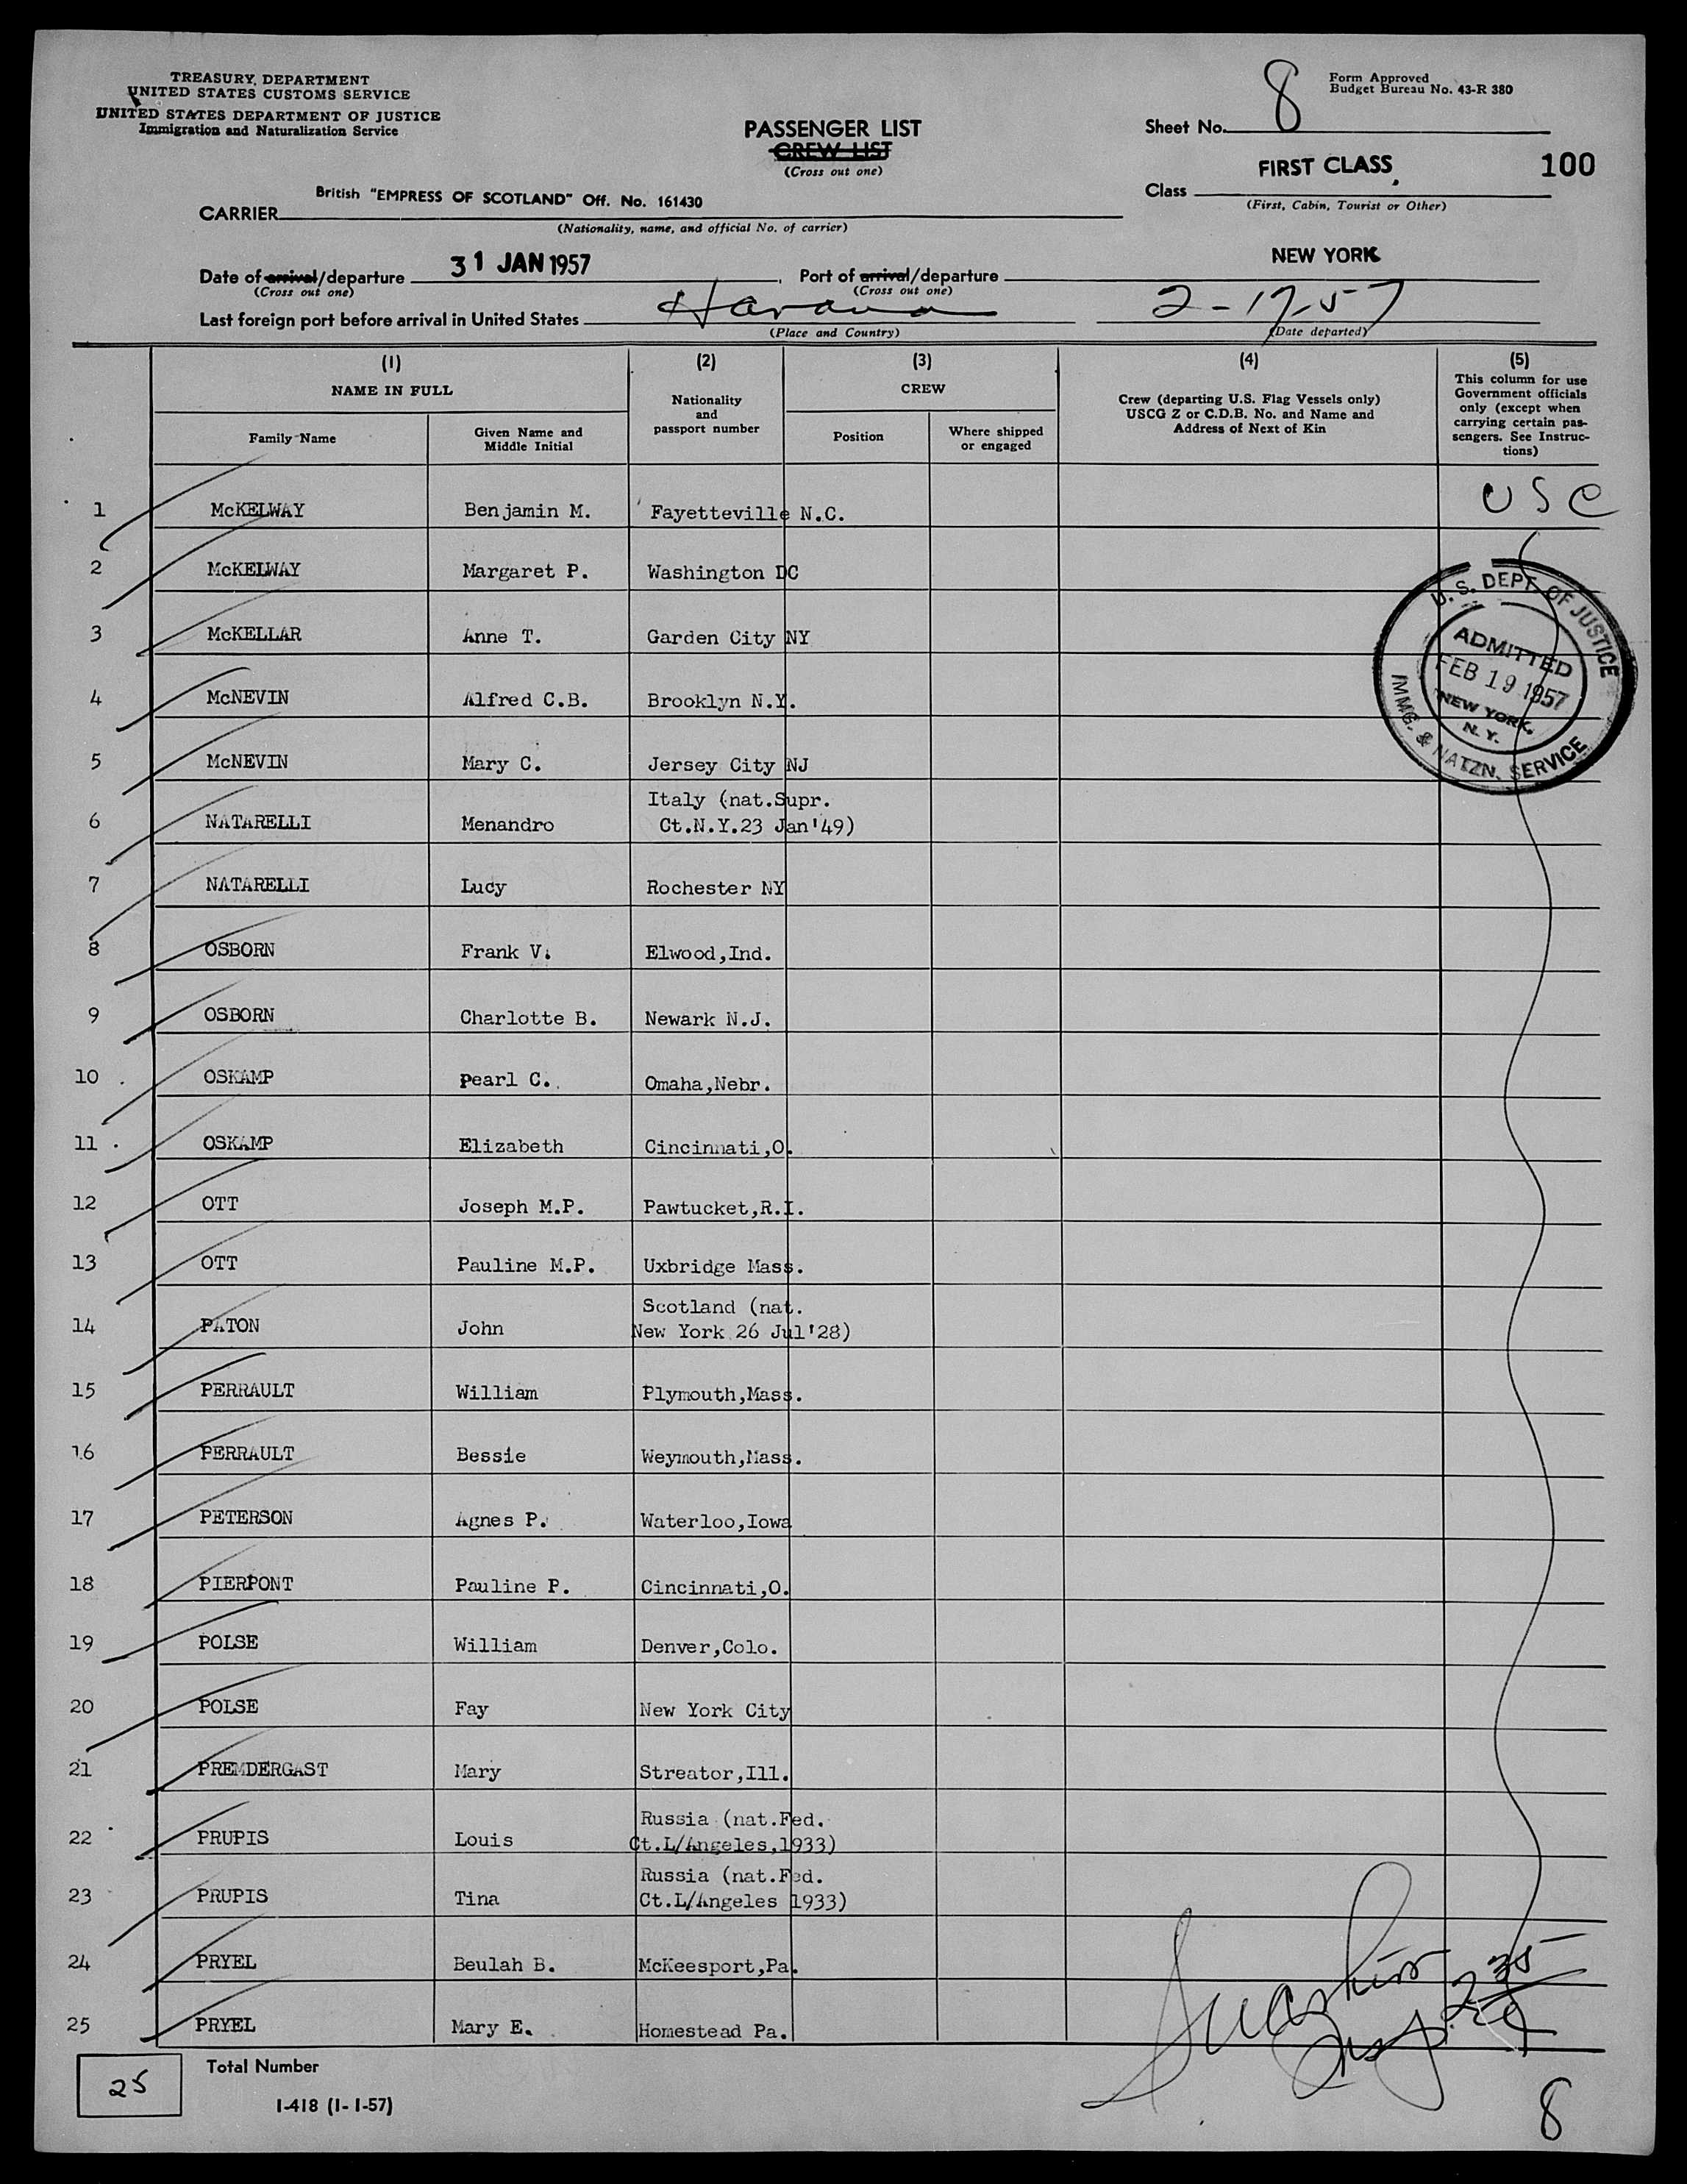 TREASURY DEPARTMENT
UNITED STATES CUSTOMS SERVICE
UNITED STATES DEPARTMENT OF JUSTICE
Immigration and Naturalization Service
PASSENGER LIST
CREW LIST
(Cross out one)
8
Form Approved
Budget Bureau No. 43-R 380
Sheet No.
FIRST CLASS
100
Class
(First, Cabin, Tourist or Other)
British "EMPRESS OF SCOTLAND" Off. No. 161430
CARRIER
(Nationality, name, and official No. of carrier)
Date of arrival/departure 31 JAN 1957
(Cross out one)
Port of arrival/departure NEW YORK
(Cross out one)
Last foreign port before arrival in United States Havana 2-17-57
(Place and Country) (Date departed)
(1) (2) (3) (4) (5)
NAME IN FULL
Family Name
Given Name and
Middle Initial
Nationality
and
passport number
CREW
Position
Where shipped
or engaged
Crew (departing U.S. Flag Vessels only)
USCG Z or C.D.B. No. and Name and
Address of Next of Kin
This column for use
Government officials
only (except when
carrying certain pas-
sengers. See Instruc-
tions)
1 McKELWAY Benjamin M. Fayetteville N.C. USC
2 McKELWAY Margaret P. Washington DC
3 McKELLAR Anne T. Garden City NY
4 McNEVIN Alfred C.B. Brooklyn N.Y.
5 McNEVIN Mary C. Jersey City NJ
U.S. DEPT. OF JUSTICE
ADMITTED
FEB 19 1957
NEW YORK,
N.Y.
IMMG. & NATZN. SERVICE
Italy (nat.Supr.
6 NATARELLI Menandro Ct.N.Y.23 Jan'49)
7 NATARELLI Lucy Rochester NY
8 OSBORN Frank V. Elwood,Ind.
9 OSBORN Charlotte B. Newark N.J.
10 OSKAMP Pearl C. Omaha,Nebr.
11 OSKAMP Elizabeth Cincinnati,O.
12 OTT Joseph M.P. Pawtucket,R.I.
13 OTT Pauline M.P. Uxbridge Mass.
Scotland (nat.
14 PATON John New York 26 Jul'28)
15 PERRAULT William Plymouth,Mass.
16 PERRAULT Bessie Weymouth,Mass.
17 PETERSON Agnes P. Waterloo,Iowa
18 PIERPONT Pauline P. Cincinnati,O.
19 POLSE William Denver,Colo.
20 POLSE Fay New York City
21 PREMDERGAST Mary Streator,Ill.
Russia (nat.Fed.
22 PRUPIS Louis Ct.L/Angeles,1933)
Russia (nat.Fed.
23 PRUPIS Tina Ct.L/Angeles 1933)
24 PRYEL Beulah B. McKeesport,Pa.
25 PRYEL Mary E. Homestead Pa.
25
Total Number
I-418 (1-1-57)
8